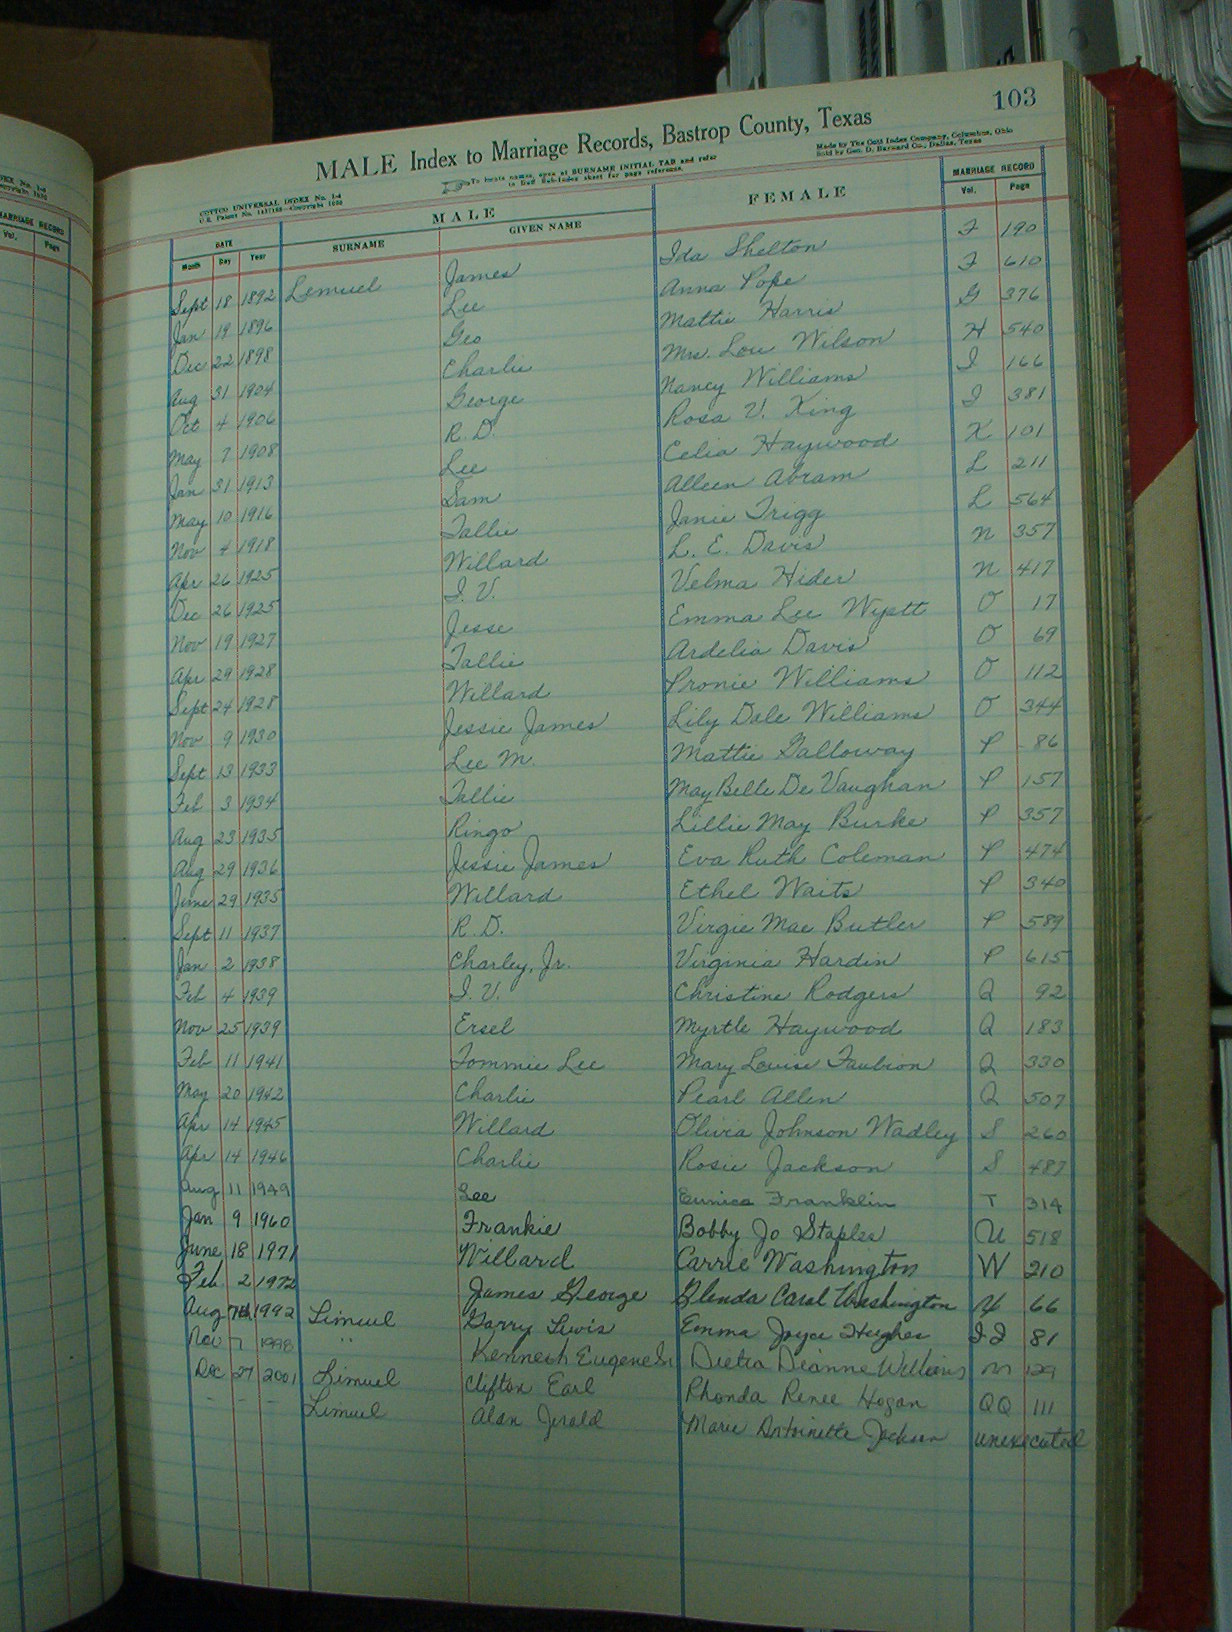 103
MALE Index to Marriage Records, Bastrop County, Texas
To locate names, open at SURNAME INITIAL TAB and refer
to Buff Sub-Index sheet for page reference.
Made by The Cott Index Company, Columbus, Ohio
Sold by Geo. D. Barnard Co., Dallas, Texas
COTTCO UNIVERSAL INDEX No. 1-4
U.S. Patent No. Copyright
MARRIAGE RECORD
Vol. Page
DATE MALE FEMALE MARRIAGE RECORD
Month Day Year SURNAME GIVEN NAME Vol. Page
Sept 18 1892 Lemuel James Ida Shelton F 190
Jan 19 1896 Lee Anna Pope F 610
Dec 22 1898 Geo Mattie Harris G 376
Aug 31 1904 Charlie Mrs. Lou Wilson H 540
Oct 4 1906 George Nancy Williams I 166
May 7 1908 R. D. Rosa V. King I 381
Jan 31 1913 Lee Celia Haywood K 101
May 10 1916 Sam Alleen Abram L 211
Nov 4 1918 Tallie Janie Trigg L 564
Apr 26 1925 Willard L. E. Davis N 357
Dec 26 1925 I. V. Velma Hider N 417
Nov 19 1927 Jesse Emma Lee Wyatt O 17
Apr 29 1928 Tallie Ardelia Davis O 69
Sept 24 1928 Willard Pronie Williams O 112
Nov 9 1930 Jessie James Lily Dale Williams O 344
Sept 13 1933 Lee M. Mattie Galloway P 86
Feb 3 1934 Tallie May Belle De Vaughan P 157
Aug 23 1935 Ringo Lillie May Burke P 357
Aug 29 1936 Jessie James Eva Ruth Coleman P 474
June 29 1935 Willard Ethel Waits P 340
Sept 11 1937 R. D. Virgie Mae Butler P 589
Jan 2 1938 Charley, Jr. Virginia Hardin P 615
Feb 4 1939 I. V. Christine Rodgers Q 92
Nov 25 1939 Ersel Myrtle Haywood Q 183
Feb 11 1941 Tommie Lee Mary Louise Faubion Q 330
May 20 1942 Charlie Pearl Allen Q 507
Apr 14 1945 Willard Olivia Johnson Wadley S 260
Apr 14 1946 Charlie Rosie Jackson S 487
Aug 11 1949 Lee Eunice Franklin T 314
Jan 9 1960 Frankie Bobby Jo Staples U 518
June 18 1971 Willard Carrie Washington W 210
Feb 2 1972 James George Glenda Carol Washington 66
Aug 7th 1992 Limuel Garry Lewis Emma Joyce Hughes II 81
Nov 7 1998 " Kenneth Eugene Sr Dietra Deanne Williams M 129
Dec 27 2001 Limuel Clifton Earl Rhonda Renee Hogan QQ 111
- - - Limuel Alan Jerald Marie Antoinette Jackson unexecuted